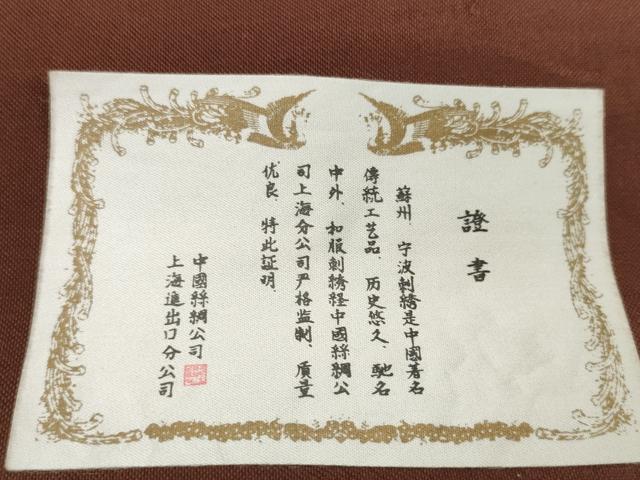 證書
蘇州、宁波刺绣是中國著名
傳統工艺品、历史悠久、馳名
中外、和服刺绣经中國絲綢公
司上海分公司严格监制、质量
优良、特此証明、
中國絲綢公司
上海進出口分公司